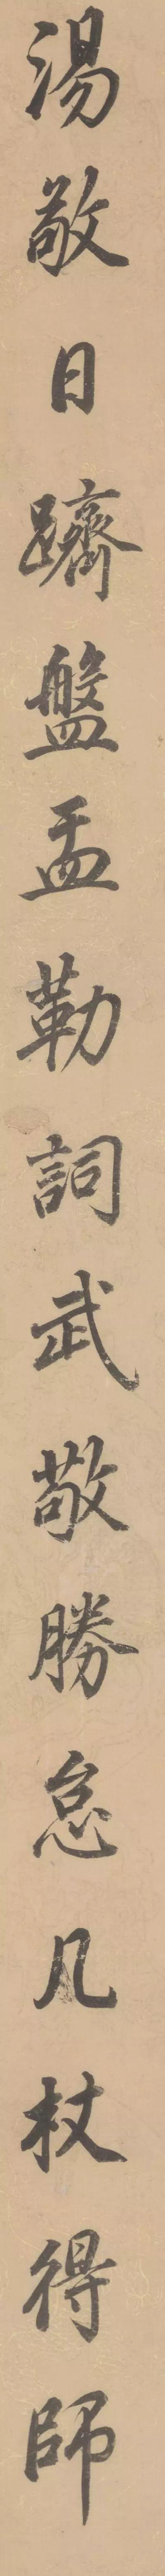 湯敬日躋盤盂勒詞武敬勝怠几杖得師